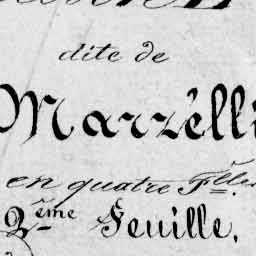 dite de
Marzélli
en quatre Flles.
2ème Feuille.